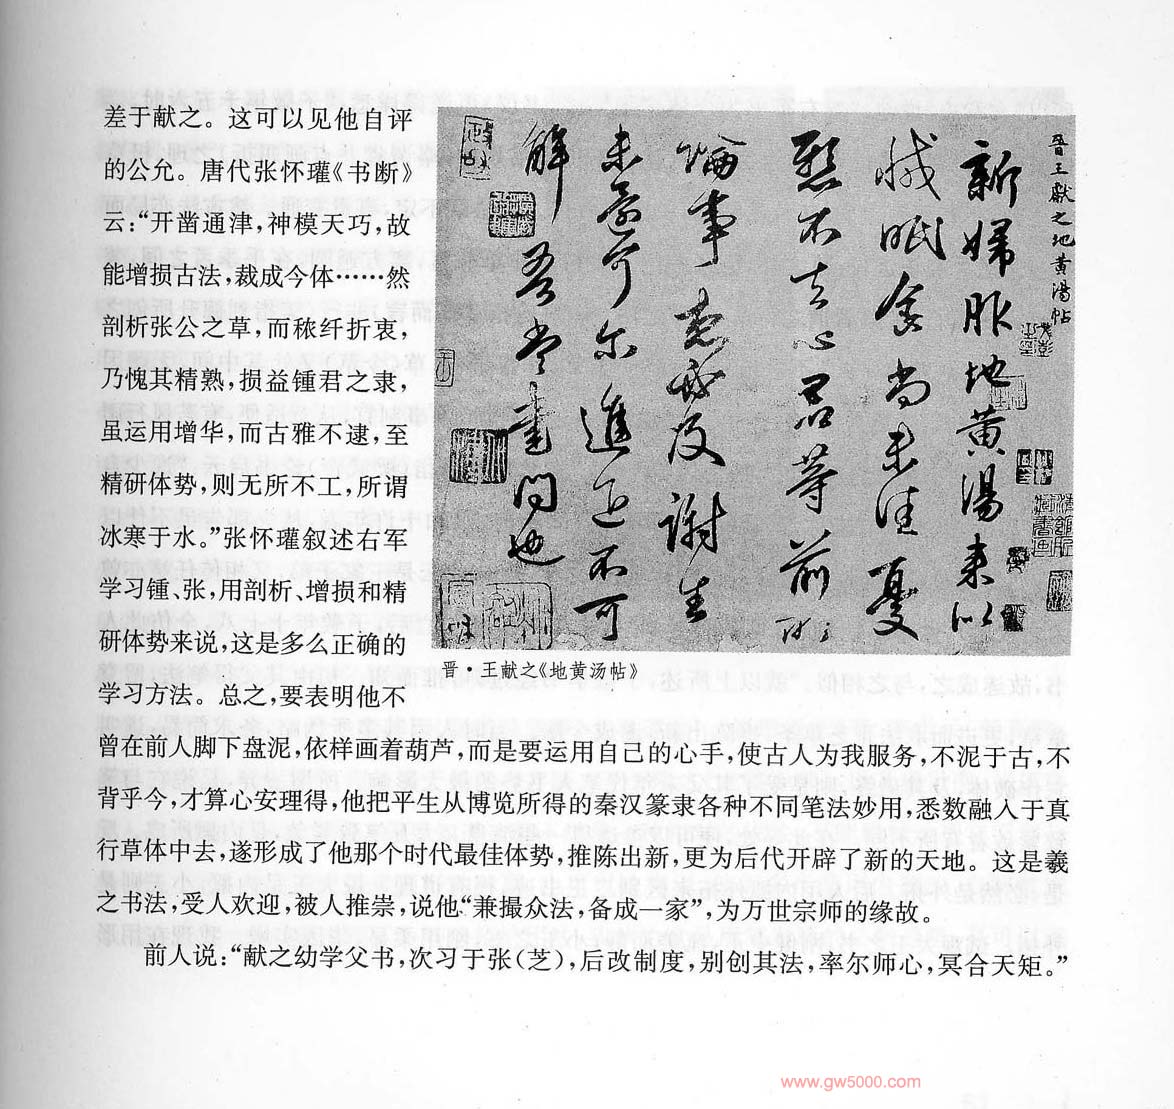 差于献之。这可以见他自评
的公允。唐代张怀瓘《书断》
云：“开凿通津，神模天巧，故
能增损古法，裁成今体……然
剖析张公之草，而秾纤折衷，
乃愧其精熟，损益锺君之隶，
虽运用增华，而古雅不逮，至
精研体势，则无所不工，所谓
冰寒于水。”张怀瓘叙述右军
学习锺、张，用剖析、增损和精
研体势来说，这是多么正确的
学习方法。总之，要表明他不
晋王獻之地黄湯帖
新婦服地黄湯来似
減眠食尚未佳憂
懸不去心君等前所
論事想必及謝生
未還可尔進退不可
解吾當書問也
晋·王献之《地黄汤帖》
曾在前人脚下盘泥，依样画着葫芦，而是要运用自己的心手，使古人为我服务，不泥于古，不
背乎今，才算心安理得，他把平生从博览所得的秦汉篆隶各种不同笔法妙用，悉数融入于真
行草体中去，遂形成了他那个时代最佳体势，推陈出新，更为后代开辟了新的天地。这是羲
之书法，受人欢迎，被人推崇，说他“兼撮众法，备成一家”，为万世宗师的缘故。
前人说：“献之幼学父书，次习于张（芝），后改制度，别创其法，率尔师心，冥合天矩。”
www.gw5000.com